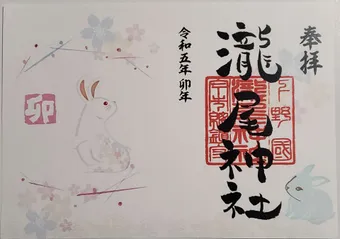 奉拝
瀧尾神社
令和五年 卯年
卯
下野國